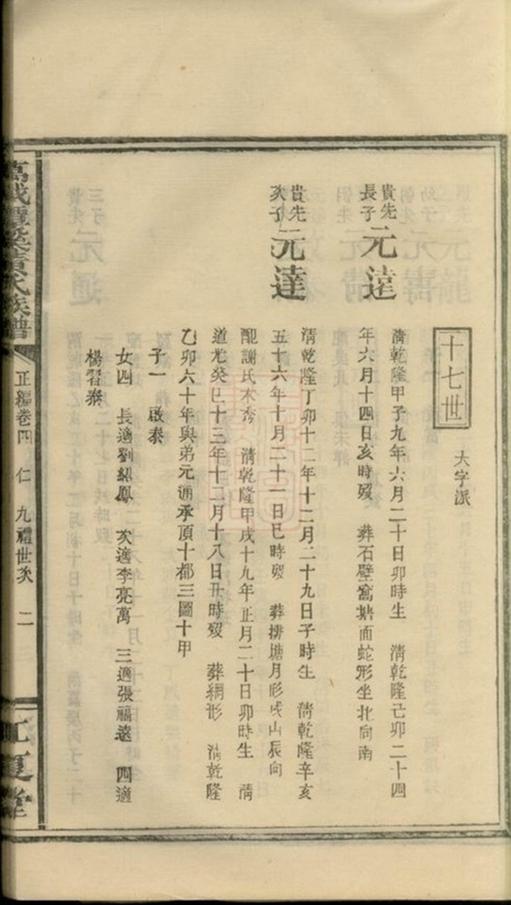 十七世
大字派
貴先長子 元達
清乾隆甲子九年六月二十日卯時生 清乾隆己卯二十四
年六月十四日亥時歿 葬石壁窩塘面蛇形坐北向南
貴先次子 元達
清乾隆丁卯十二年十二月二十九日子時生 清乾隆辛亥
五十六年十月二十一日巳時歿 葬排塘月形戌山辰向
配謝氏木秀 清乾隆甲戌十九年正月二十日卯時生 清
道光癸巳十三年十二月十八日丑時歿 葬網形 清乾隆
乙卯六十年與弟元通承頂十都三圖十甲
子一 啟泰
女四 長適劉紹鳳 次適李亮萬 三適張福遠 四適
楊習泰
氏族譜
正編卷四 仁 九禮世次 二
江夏堂